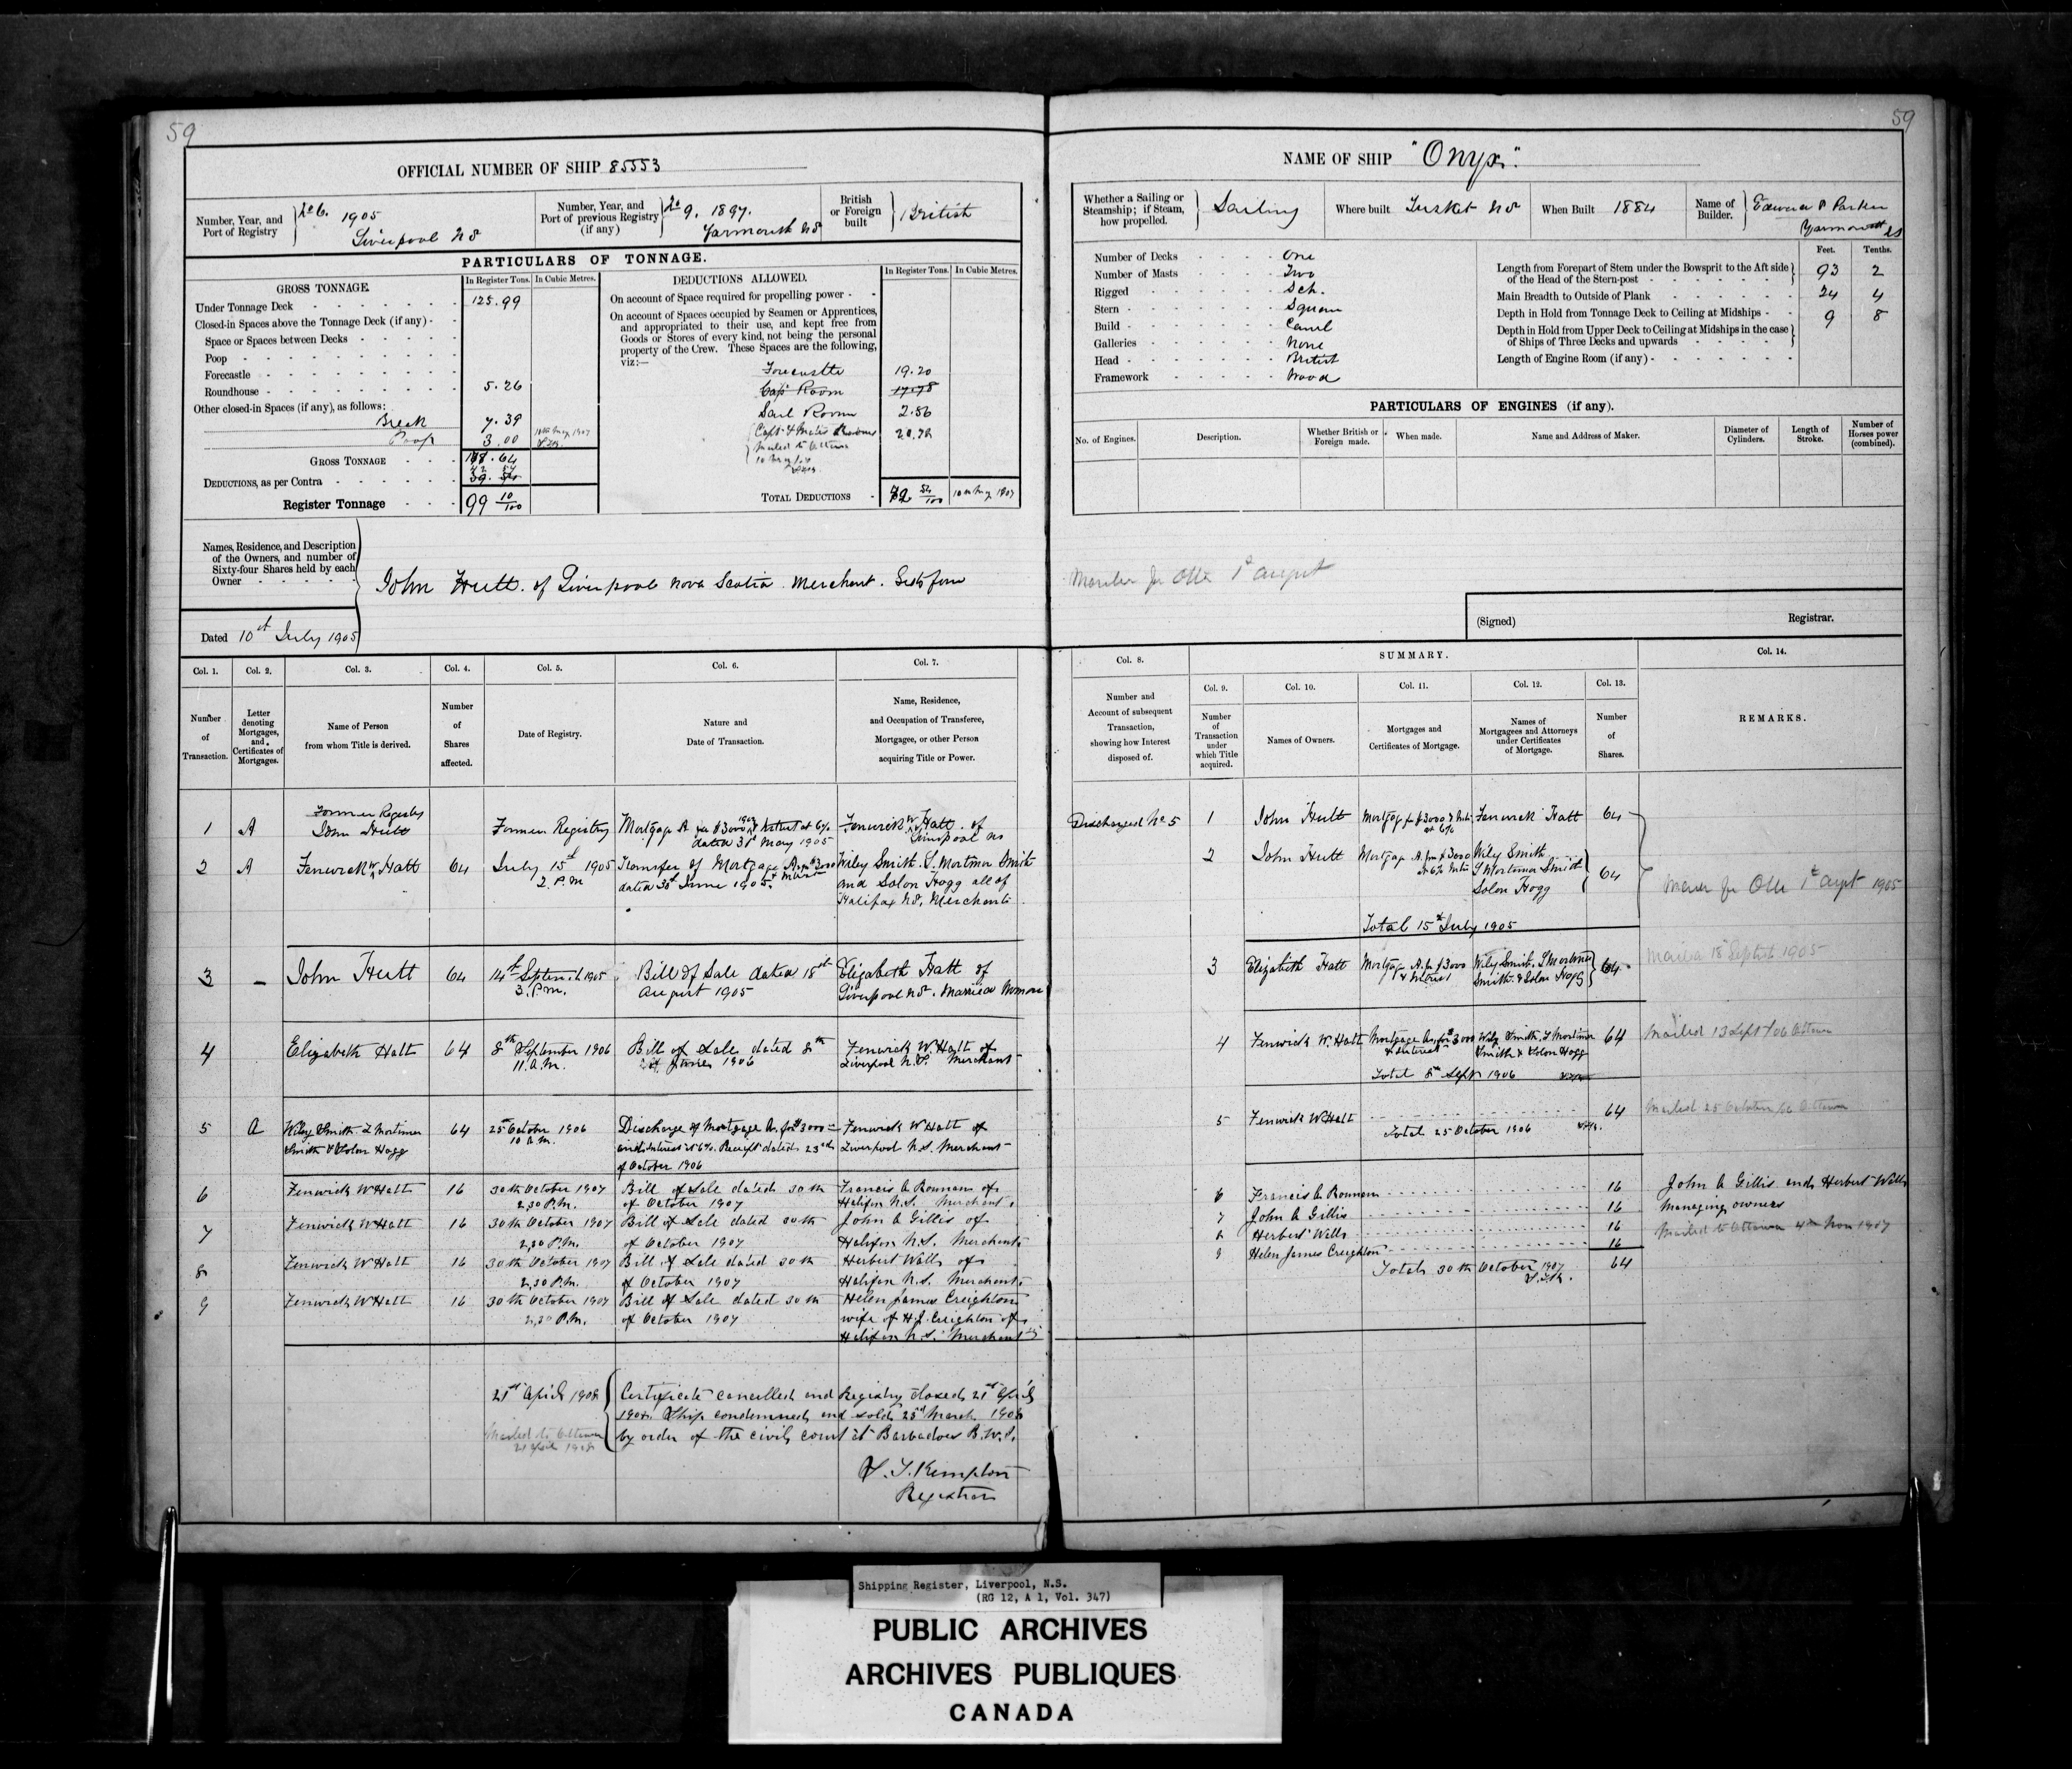 59
OFFICIAL NUMBER OF SHIP 85553
Number, Year, and Port of Registry
No 6. 1905
Liverpool NS
Number, Year, and Port of previous Registry (if any)
No 9. 1897.
Yarmouth NS
British or Foreign built
British
PARTICULARS OF TONNAGE.
GROSS TONNAGE.
In Register Tons.
In Cubic Metres.
Under Tonnage Deck 125.99
Closed-in Spaces above the Tonnage Deck (if any)
Space or Spaces between Decks
Poop
Forecastle
Roundhouse 5.26
Other closed-in Spaces (if any), as follows:
Break 7.39
Poop 3.00 10th May 1907
GROSS TONNAGE .64
DEDUCTIONS, as per Contra
Register Tonnage 99 10/100
DEDUCTIONS ALLOWED.
In Register Tons.
In Cubic Metres.
On account of Space required for propelling power
On account of Spaces occupied by Seamen or Apprentices, and appropriated to their use, and kept free from Goods or Stores of every kind, not being the personal property of the Crew. These Spaces are the following, viz:—
Forecastle 19.20
Cap Room 17.78
Sail Room 2.56
Capt & Mates Rooms 20.78
Mailed to Ottawa
TOTAL DEDUCTIONS 42 54/100 10th May 1907
Names, Residence, and Description of the Owners, and number of Sixty-four Shares held by each Owner
John Hutt. of Liverpool Nova Scotia. Merchant. Sixty four
Dated 10th July 1905
Col. 1. Col. 2. Col. 3. Col. 4. Col. 5. Col. 6. Col. 7.
Number of Transaction.
Letter denoting Mortgages, and Certificates of Mortgages.
Name of Person from whom Title is derived.
Number of Shares affected.
Date of Registry.
Nature and Date of Transaction.
Name, Residence, and Occupation of Transferee, Mortgagee, or other Person acquiring Title or Power.
Former Registry
1 A John Hutt Former Registry Mortgage A for $3000 & Interest at 6% Fenwick W Hatt. of
dated 31st May 1905 Liverpool NS
2 A Fenwick W Hatt 64 July 15th 1905 Transfer of Mortgage A for $3000 Wiley Smith. L. Mortimer Smith
2. P.m dated 30th June 1905. & Interest and Solon Hogg all of
Halifax NS, Merchants
3 - John Hutt 64 14th Septemb 1905 Bill of Sale dated 18th Elizabeth Hatt of
3. P.m. August 1905 Liverpool NS. Married Woman
4 Elizabeth Hatt 64 8th September 1906 Bill of Sale dated 8th Fenwick W. Hatt of
11. A.M. of June 1906 Liverpool N.S. Merchant
5 A Wiley Smith L Mortimer 64 25 October 1906 Discharge of Mortgage A. for $3000 Fenwick W Hatt of
Smith & Solon Hogg 10 A.M. and interest at 6%. Receipt dated 23rd Liverpool N.S. Merchant
of October 1906
6 Fenwick W Hatt 16 30th October 1907 Bill of Sale dated 30th Francis A Ronnan of
2,30 P.M. of October 1907 Halifax N.S. Merchant.
7 Fenwick W Hatt 16 30th October 1907 Bill of Sale dated 30th John A Gillis of
2,30 P.M. of October 1907 Halifax N.S. Merchant
8 Fenwick W Hatt 16 30th October 1907 Bill of Sale dated 30th Herbert Wells of
2,30 P.M. of October 1907 Halifax N.S. Merchant
9 Fenwick W Hatt 16 30th October 1907 Bill of Sale dated 30th Helen James Creighton
2,30 P.M. of October 1907 wife of H.J. Creighton of
Halifax N.S. Merchant
21st April 1908 Certificate cancelled and Registry closed 21st April
1908. Ship condemned and sold 25th March 1908
Mailed to Ottawa by order of the civil court at Barbadoes B.W.I.
21 April 1908
L. T. Kempton
Registrar
59
NAME OF SHIP "Onyx".
Whether a Sailing or Steamship; if Steam, how propelled.
Sailing
Where built Tusket NS
When Built 1884
Name of Builder.
Edward P Parker
Yarmouth NS
Number of Decks One
Number of Masts Two
Rigged Sch.
Stern Square
Build Carvel
Galleries None
Head British
Framework Wood
Feet. Tenths.
Length from Forepart of Stem under the Bowsprit to the Aft side of the Head of the Stern-post 93 2
Main Breadth to Outside of Plank 24 4
Depth in Hold from Tonnage Deck to Ceiling at Midships 9 8
Depth in Hold from Upper Deck to Ceiling at Midships in the case of Ships of Three Decks and upwards
Length of Engine Room (if any)
PARTICULARS OF ENGINES (if any).
No. of Engines.
Description.
Whether British or Foreign made.
When made.
Name and Address of Maker.
Diameter of Cylinders.
Length of Stroke.
Number of Horses power (combined).
1st August
(Signed) Registrar.
Col. 8. SUMMARY. Col. 14.
Col. 9. Col. 10. Col. 11. Col. 12. Col. 13.
Number and Account of subsequent Transaction, showing how Interest disposed of.
Number of Transaction under which Title acquired.
Names of Owners.
Mortgages and Certificates of Mortgage.
Names of Mortgagees and Attorneys under Certificates of Mortgage.
Number of Shares.
REMARKS.
Discharged No 5 1 John Hutt Mortgage for $3000 & Int at 6% Fenwick Hatt 64
2 John Hutt Mortgage A. for $3000 at 6% Int Wiley Smith
L Mortimer Smith 64
Solon Hogg
1st August 1905
Total 15th July 1905
3 Elizabeth Hatt Mortgage A. for $3000 & Interest Wiley Smith. L Mortimer Smith. & Solon Hogg 64 Mailed 18 Septemb 1905
4 Fenwick W. Hatt Mortgage A. for $3000 & Interest Wiley Smith, L Mortimer Smith & Solon Hogg 64 Mailed 13 Sept/06 Ottawa
Total 8th Sept 1906
5 Fenwick W Hatt 64 Mailed 25 October/06 Ottawa
Total 25 October 1906
6 Francis A Ronnan 16 John A Gillis and Herbert Wells
7 John A Gillis 16 Managing owners
8 Herbert Wells 16 Mailed to Ottawa 4th Nov 1907
9 Helen James Creighton 16
Total 30th October 1907 64
Shipping Register, Liverpool, N.S.
(RG 12, A 1, Vol. 347)
PUBLIC ARCHIVES
ARCHIVES PUBLIQUES
CANADA